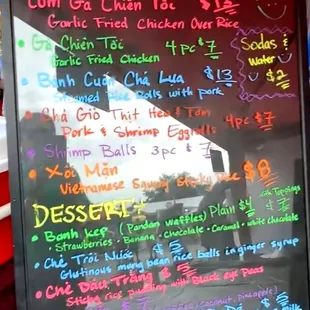 Com Ga Chien Toc $12
Garlic Fried Chicken Over Rice
Ga Chiên Tỏc 4pc $7
Garlic Fried Chicken
Sodas &
Water
$2
Banh Cuốn Chả Lụa $13
Steamed Rice Rolls with pork
Chả Giò Thịt Heo & Tôm
Pork & Shrimp Eggrolls 4pc $7
Shrimp Balls 3pc $7
Xôi Mặn $8
Vietnamese Savory Sticky Rice
DESSERT
with Toppings
Banh Kep (Pandan waffles) Plain $4 $7
Strawberries · Banana · Chocolate · Caramel · white chocolate
Chè Trôi Nước $5
Glutinous mong bean rice balls in ginger syrup
Chè Dâu Trắng $5
Sticky rice pudding with Black eye Peas
(Coconut, pineapple)
milk